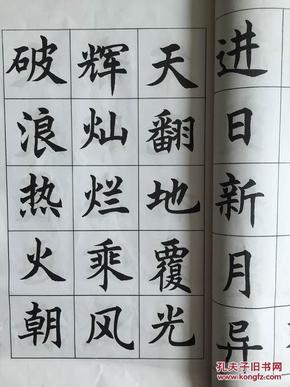 进日新月异
天翻地覆光
辉灿烂乘风
破浪热火朝
孔夫子旧书网